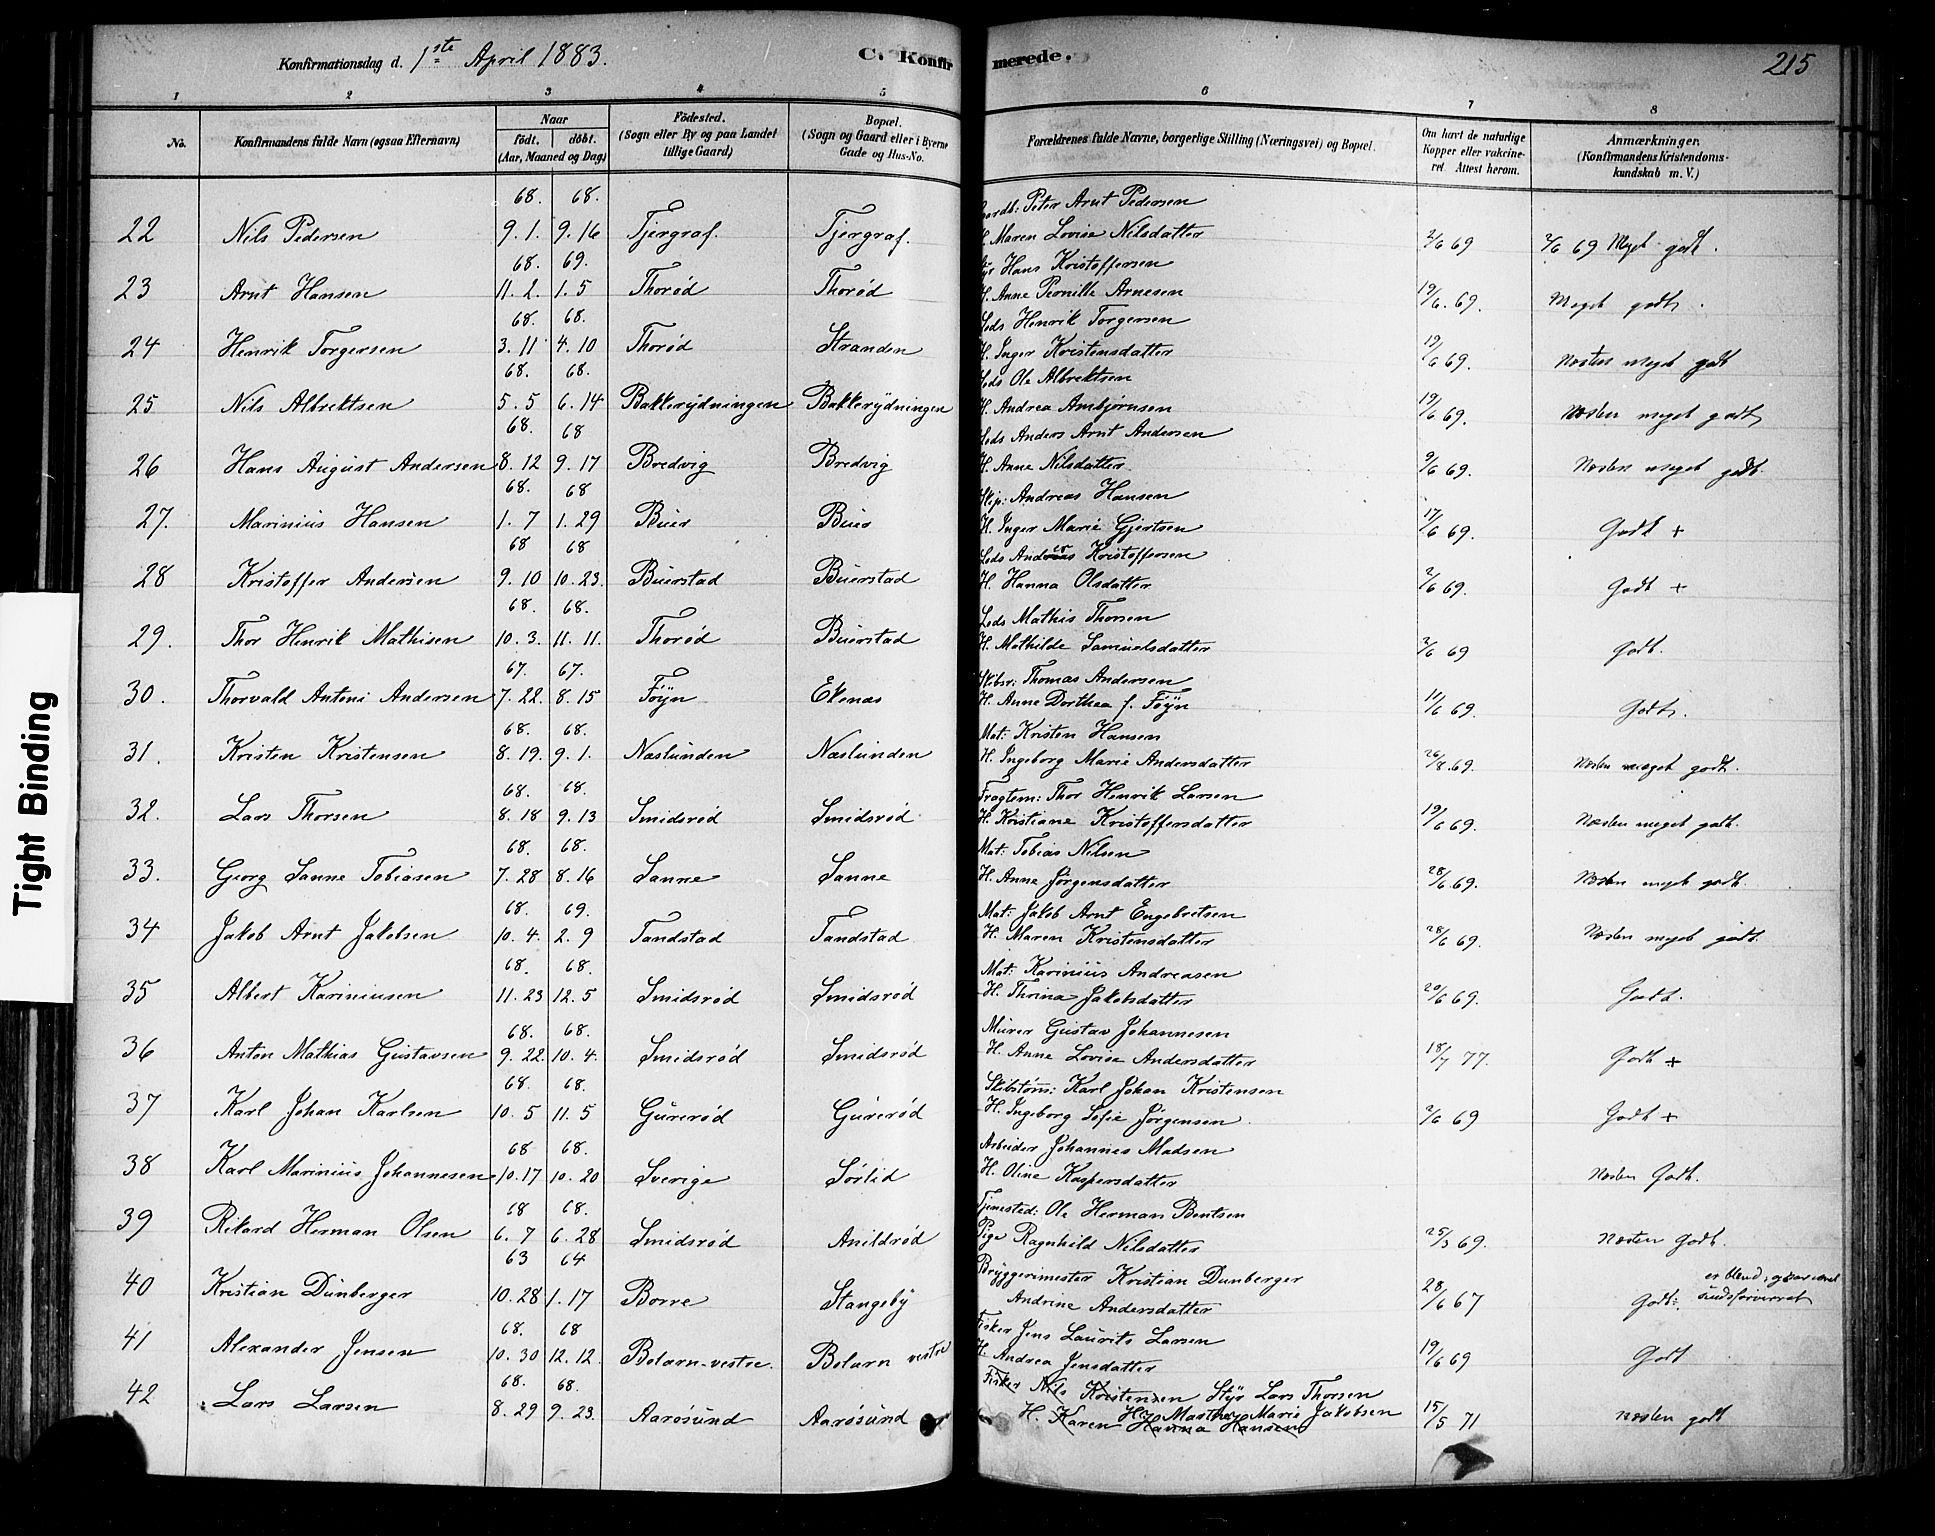 Konfirmationsdag d. 1ste April 1883.
C. Konfirmerede.
215
1 2 3 4 5 6 7 8
No.
Konfirmandens fulde Navn (ogsaa Efternavn)
Naar
født. døbt.
(Aar, Maaned og Dag)
Fødested.
(Sogn eller By og paa Landet
tillige Gaard)
Bopæl.
(Sogn og Gaard eller i Byerne
Gade og Hus-No.
Forældrenes fulde Navne, borgerlige Stilling (Næringsvei) og Bopæl.
Om havt de naturlige
Kopper eller vakcine-
ret. Attest herom.
Anmærkninger.
(Konfirmandens Kristendoms-
kundskab m. V.)
68. 68. Peter Arnt Pedersen
22 Nils Pedersen 9. 1. 9. 16 Tjergraf. Tjergraf. H. Maren Lovise Nilsdatter 2/6 69 2/6 69 Meget godt.
68. 69. Hans Kristoffersen
23 Arnt Hansen 11. 2. 1. 5 Thorød Thorød H. Anne Pernille Arnesen 19/6. 69. Meget godt.
68. 68. Leds Henrik Torgersen
24 Henrik Torgersen 3. 11 4. 10 Thorød Stranden H. Inger Kristensdatter 19/6 69. Næsten meget godt
68. 68. Leds Ole Albrektsen
25 Nils Albrektsen 5. 5 6. 14 Bakkerydningen Bakkerydningen H. Andrea Ambjørnsen 19/6 69. Næsten meget godt
68. 68 Leds Anders Arnt Andersen
26 Hans August Andersen 8. 12 9. 17 Bredvig Bredvig H. Anne Nilsdatter 9/6 69. Næsten meget godt.
68. 68 Skip: Andreas Hansen
27. Marinius Hansen 1. 7 1. 29 Buer Buer H. Inger Marie Gjertsen 17/6 69. Godt +
68 68 Leds Anders Kristoffersen
28 Kristoffer Andersen 9. 10 10. 23. Buerstad Buerstad H. Hanna Olsdatter 2/6 69. Godt +
68. 68. Leds Mathis Thorsen
29. Thor Henrik Mathisen 10. 3. 11. 11. Thorød Buerstad H. Mathilde Samuelsdatter 3/6 69 Godt.
67. 67. Skibsr: Thomas Andersen
30. Thorvald Antoni Andersen 7. 22. 8. 15 Føyn Ekenæs H. Anne Dorthea f. Føyn 11/6 69. Godt.
68. 68. Mat: Kristen Hansen
31. Kristen Kristensen 8. 19. 9. 1. Næslunden Næslunden H. Ingeborg Marie Andersdatter 26/8. 69. Næsten meget godt.
68. 68. Fragtem: Thor Henrik Larsen
32. Lars Thorsen 8. 18 9. 13 Smidsrød Smidsrød H. Kristiane Kristoffersdatter 19/6 69. Næsten meget godt.
68. 68. Mat: Tobias Nilsen
33. Georg Sanne Tobiasen 7. 28 8. 16 Sanne Sanne H. Anne Jørgensdatter 28/6 69. Næsten meget godt.
68. 69. Mat: Jakob Arnt Engebretsen
34 Jakob Arnt Jakobsen 10. 4. 2. 9 Tandstad Tandstad H. Maren Kristensdatter 28/6 69. Næsten meget godt.
68. 68. Mat: Karinius Andreasen
35 Albert Kariniusen 11. 23 12. 5 Smidsrød Smidsrød H. Thrina Jakobsdatter 20/6 69. Godt.
68. 68. Murer Gustav Johannesen
36 Anton Mathias Gustavsen 9. 22. 10. 4. Smidsrød Smidsrød H. Anne Lovise Andersdatter 18/7 77. Godt +
68. 68. Skibstøm: Karl Johan Kristensen
37 Karl Johan Karlsen 10. 5 11. 5 Gurerød Gurerød H. Ingeborg Sofie Jørgensen. 2/6 69 Godt +
68 68. Arbeider Johannes Madsen
38 Karl Marinius Johannesen 10. 17 10. 20 Sverige Sørlid H. Oline Kaspersdatter Næsten Godt.
68 68. Tjenested: Ole Herman Bentsen
39 Rikard Herman Olsen 6. 7 6. 28 Smidsrød Anildrød Pige Ragnhild Nilsdatter 25/3 69. Næsten Godt.
63 64 Bryggerimester Kristian Dunberger
40 Kristian Dunberger 10. 28 1. 17 Borre Stangeby Andrine Andersdatter 28/6 67 Godt: er blind, sindsforvirret
68. 68 Fisker Jens Laurits Larsen
41 Alexander Jensen 10. 30 12. 12. Bolærn-vestre. Bolærn vestre H. Andrea Jensdatter 19/6 69 Godt
68. 68. Fisker Nils Kristensen Styr Lars Thorsen
42 Lars Larsen 8. 29 9. 23. Aarøsund Aarøsund H. Karen Hanna Hansen H. Marthe Marie Jakobsen 15/5 71 Næsten godt
Tight Binding